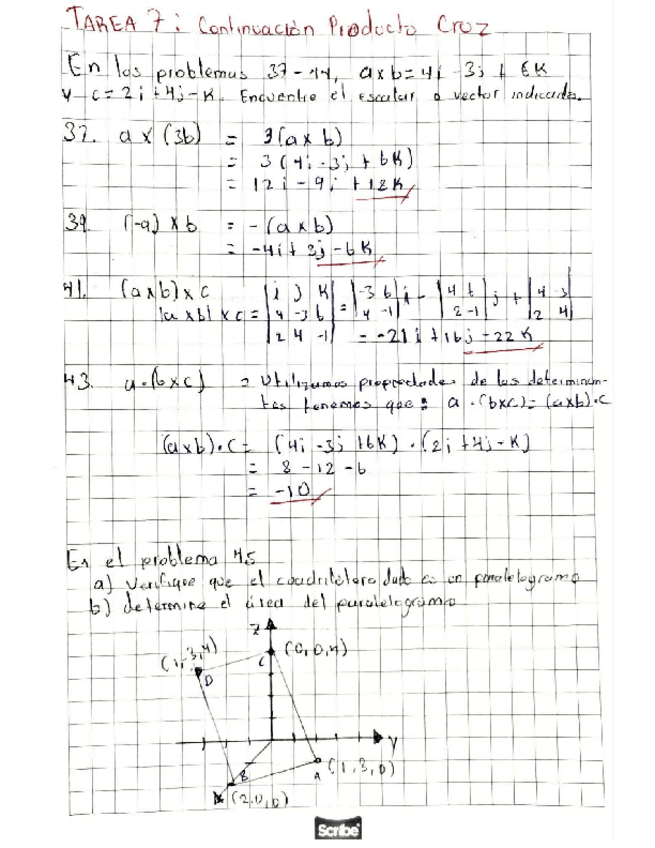 TAREA 7: Continuación Producto Cruz
En los problemas 37-44, axb=4i - 3j + 6K
y c=2i+4j-K. Encuentre el escalar o vector indicado.
37. a x (3b) = 3(axb)
= 3(4i-3j+6K)
= 12i-9j+18K
39. (-a) x b = -(axb)
= -4i+3j-6K
41. (axb)xc
(axb) x c = |i j K| = |-3 6|i - |4 6|j + |4 -3|
|4 -3 6| |4 -1| |2 -1| |2 4|
|2 4 -1| = -21i+16j-22K
43. a·(bxc) = Utilizamos propiedades de los determinan-
tes tenemos que: a·(bxc)=(axb)·c
(axb)·c = (4i-3j+6K)·(2i+4j-K)
= 8-12-6
= -10
En el problema 45
a) Verifique que el cuadrilátero dado es un paralelogramo
b) determine el área del paralelogramo
z
(1,-3,4) C (0,0,4)
D
y
B A (1,3,0)
x (2,0,0)
Scribe